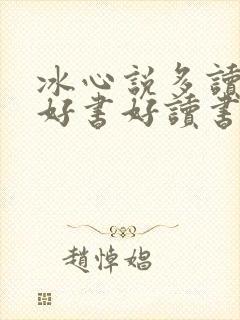 冰心說多讀
好書好讀書
趙悼娼